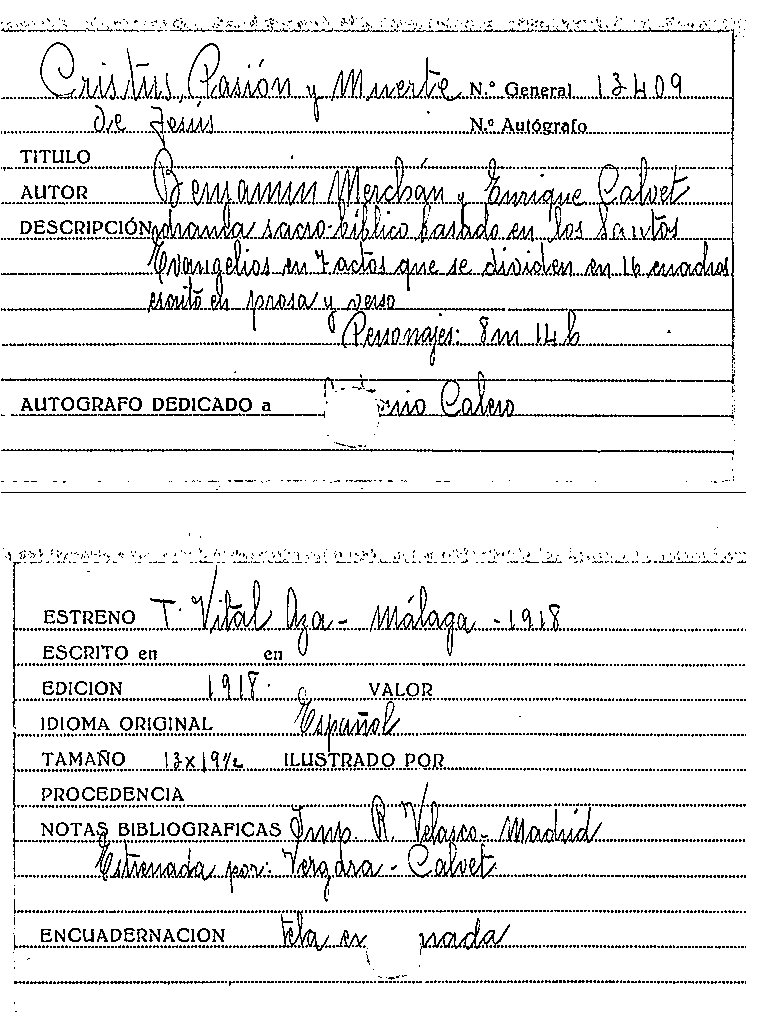 Cristus, Pasión y Muerte N.º General 13409
de Jesús N.º Autógrafo
TITULO
AUTOR Benjamin Merchán y Enrique Calvet
DESCRIPCIÓN drama sacro-bíblico basado en los Santos
Evangelios en 7 actos que se dividen en 16 cuadros
escrito en prosa y verso
Personajes: 8m 14h
AUTOGRAFO DEDICADO a Calero
ESTRENO T. Vital Aza - Málaga - 1918
ESCRITO en en
EDICION 1918 VALOR
IDIOMA ORIGINAL Español
TAMAÑO 13x19½ ILUSTRADO POR
PROCEDENCIA
NOTAS BIBLIOGRAFICAS Imp. R. Velasco - Madrid
Estrenada por: Vergara - Calvet
ENCUADERNACION tela